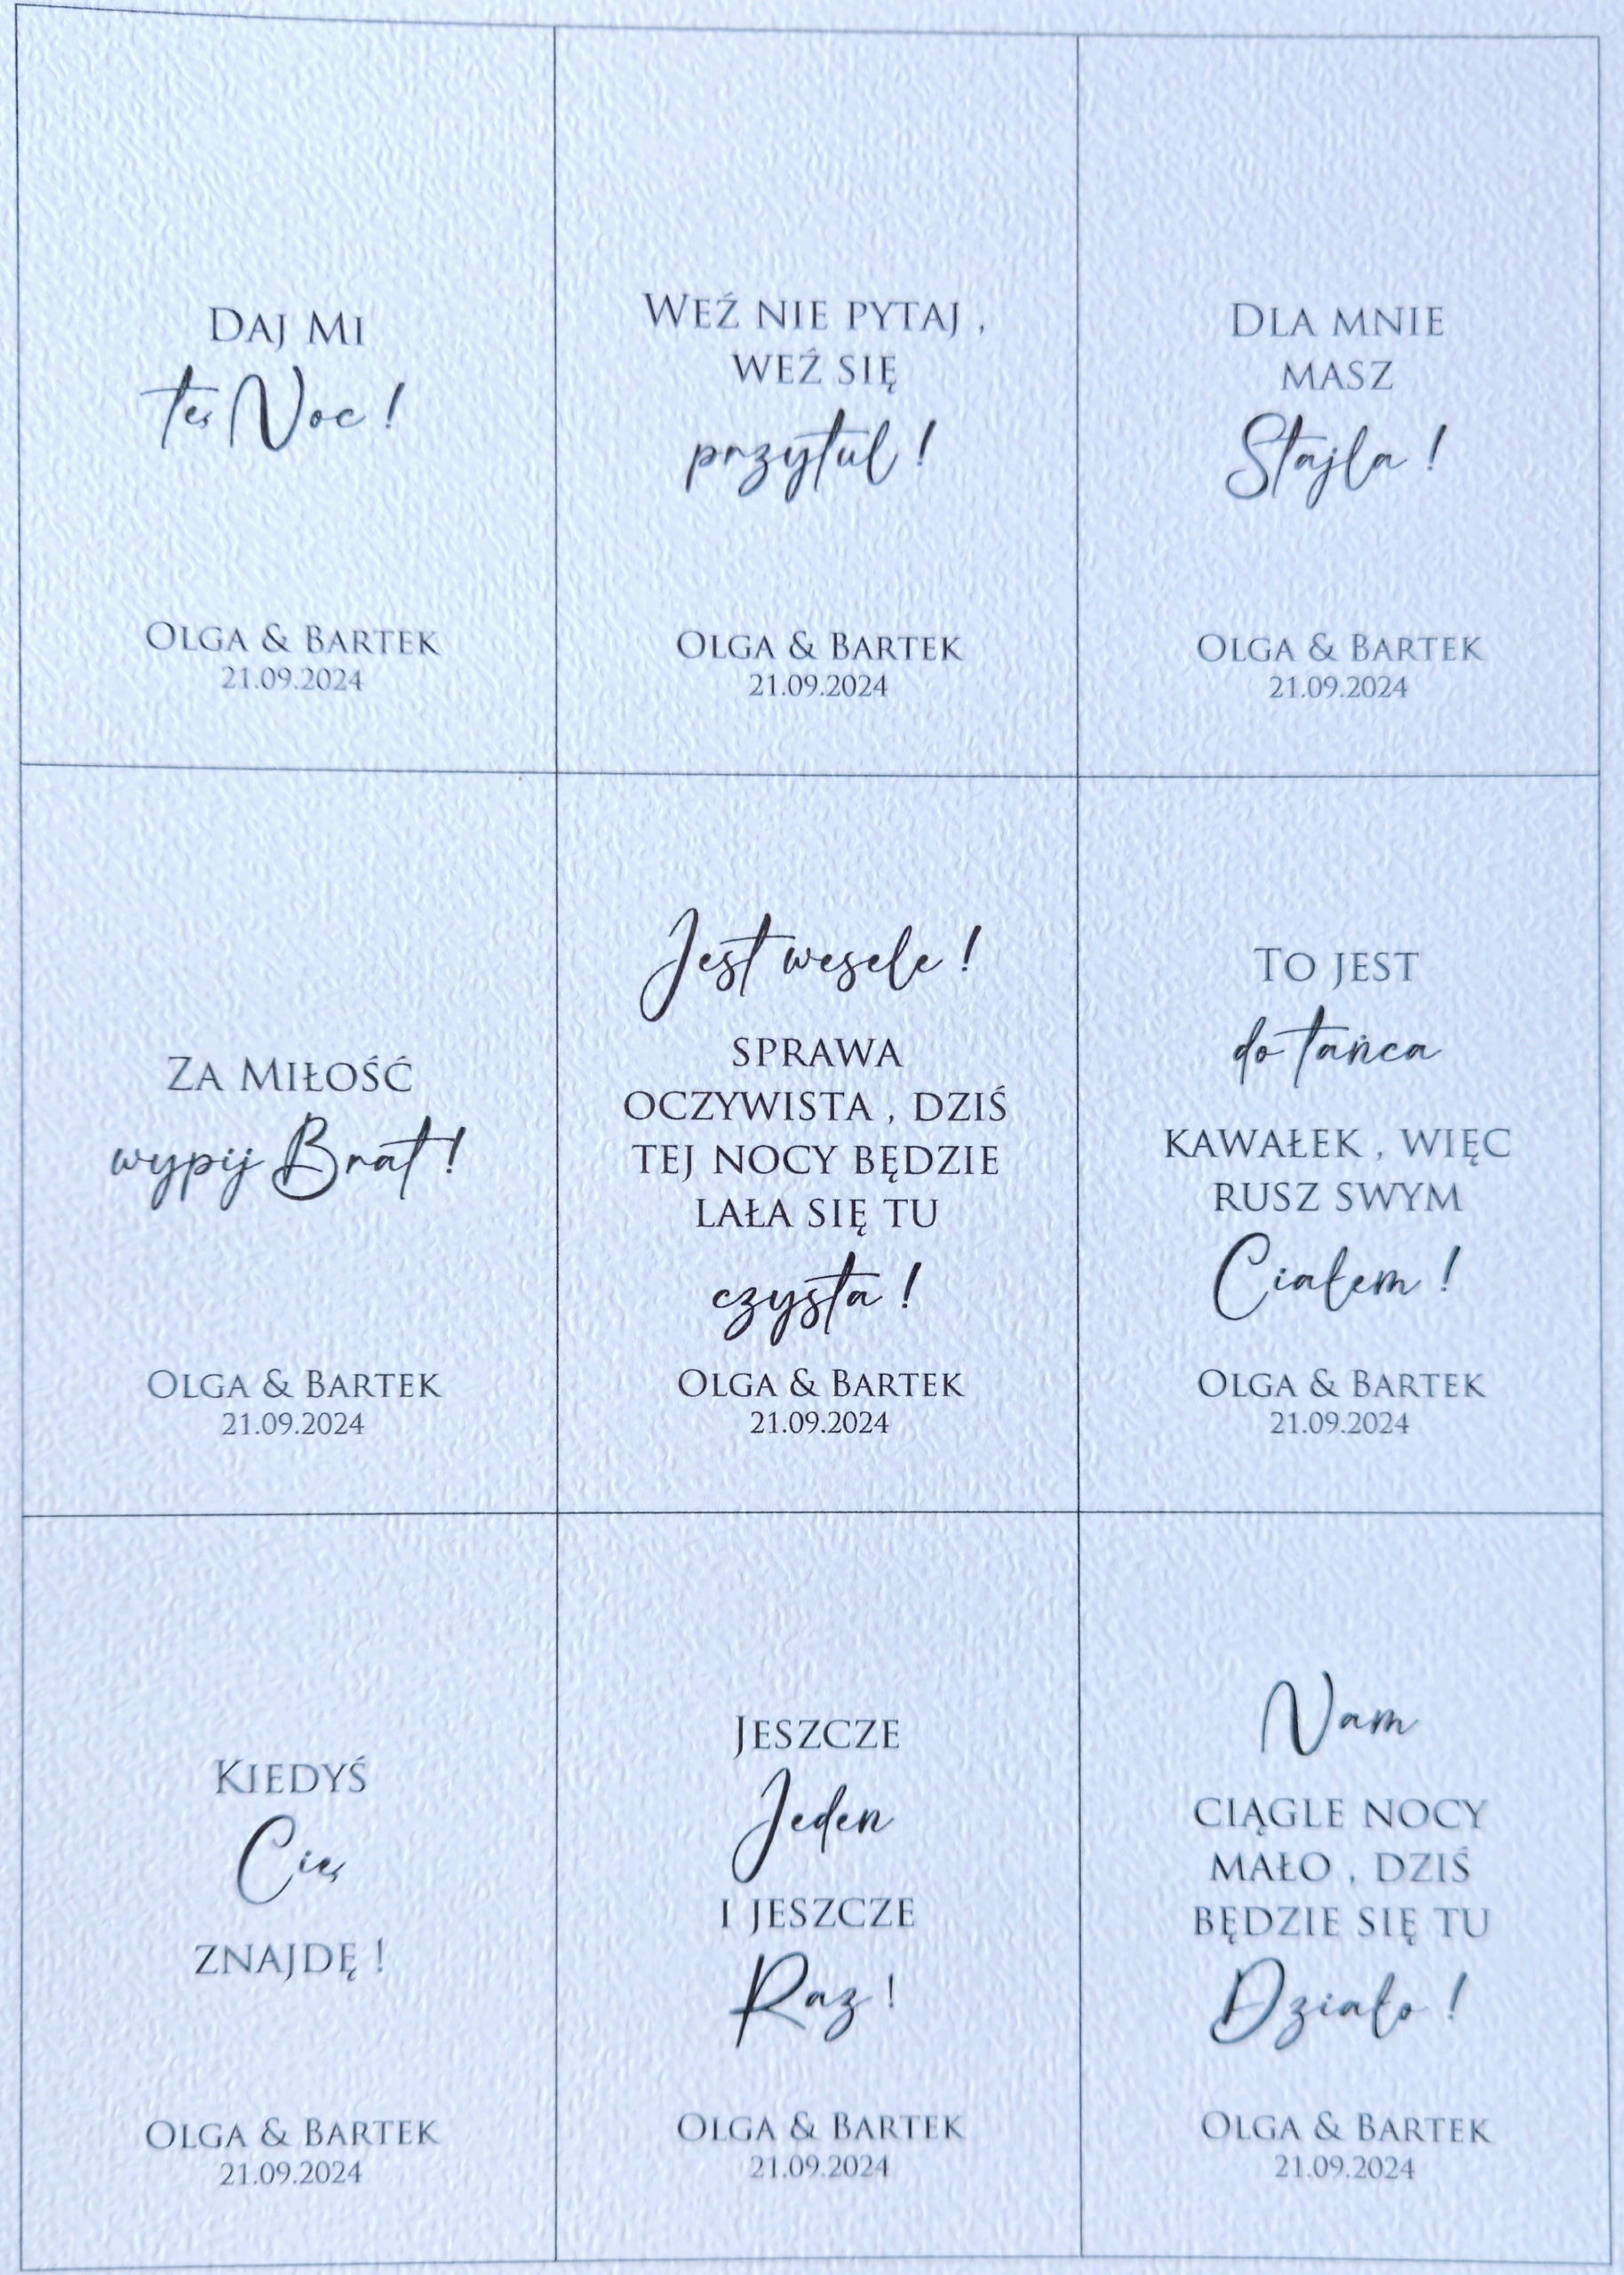 Daj Mi
tę Noc !
Olga & Bartek
21.09.2024
Weź nie pytaj ,
weź się
przytul !
Olga & Bartek
21.09.2024
Dla mnie
masz
Stajla !
Olga & Bartek
21.09.2024
Za Miłość
wypij Brat !
Olga & Bartek
21.09.2024
Jest wesele !
sprawa
oczywista , dziś
tej nocy będzie
lała się tu
czysta !
Olga & Bartek
21.09.2024
To jest
do tańca
kawałek , więc
rusz swym
Ciałem !
Olga & Bartek
21.09.2024
Kiedyś
Cię
znajdę !
Olga & Bartek
21.09.2024
Jeszcze
Jeden
i jeszcze
Raz !
Olga & Bartek
21.09.2024
Nam
ciągle nocy
mało , dziś
będzie się tu
Działo !
Olga & Bartek
21.09.2024